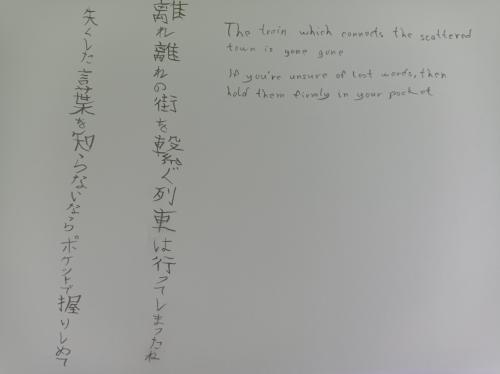 離れ離れの街を繋ぐ列車は行ってしまったね
失くした言葉を知らないならポケットで握りしめて
The train which connects the scattered
town is gone gone
If you're unsure of lost words, then
hold them firmly in your pocket